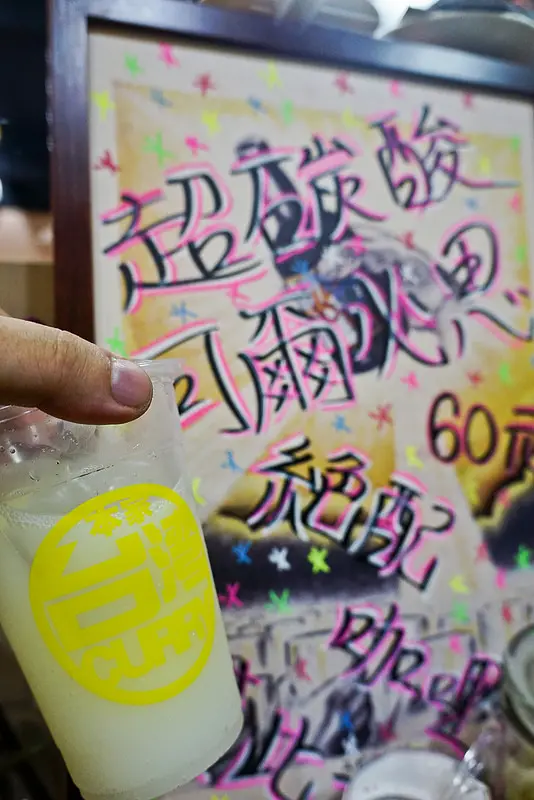 超碳酸
可爾必思
60元
絕配
咖哩
CURRY